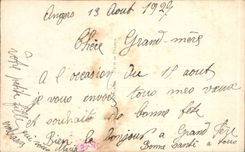 Angers 13 Aout 1929
Chère Grand-mère
A l'occasion du 15 aout
je vous envoie tous mes vœux
et souhaits de bonne fête
Bien le bonjour a Grand Père
Bonne Santé a tous
votre petite fille
qui vous